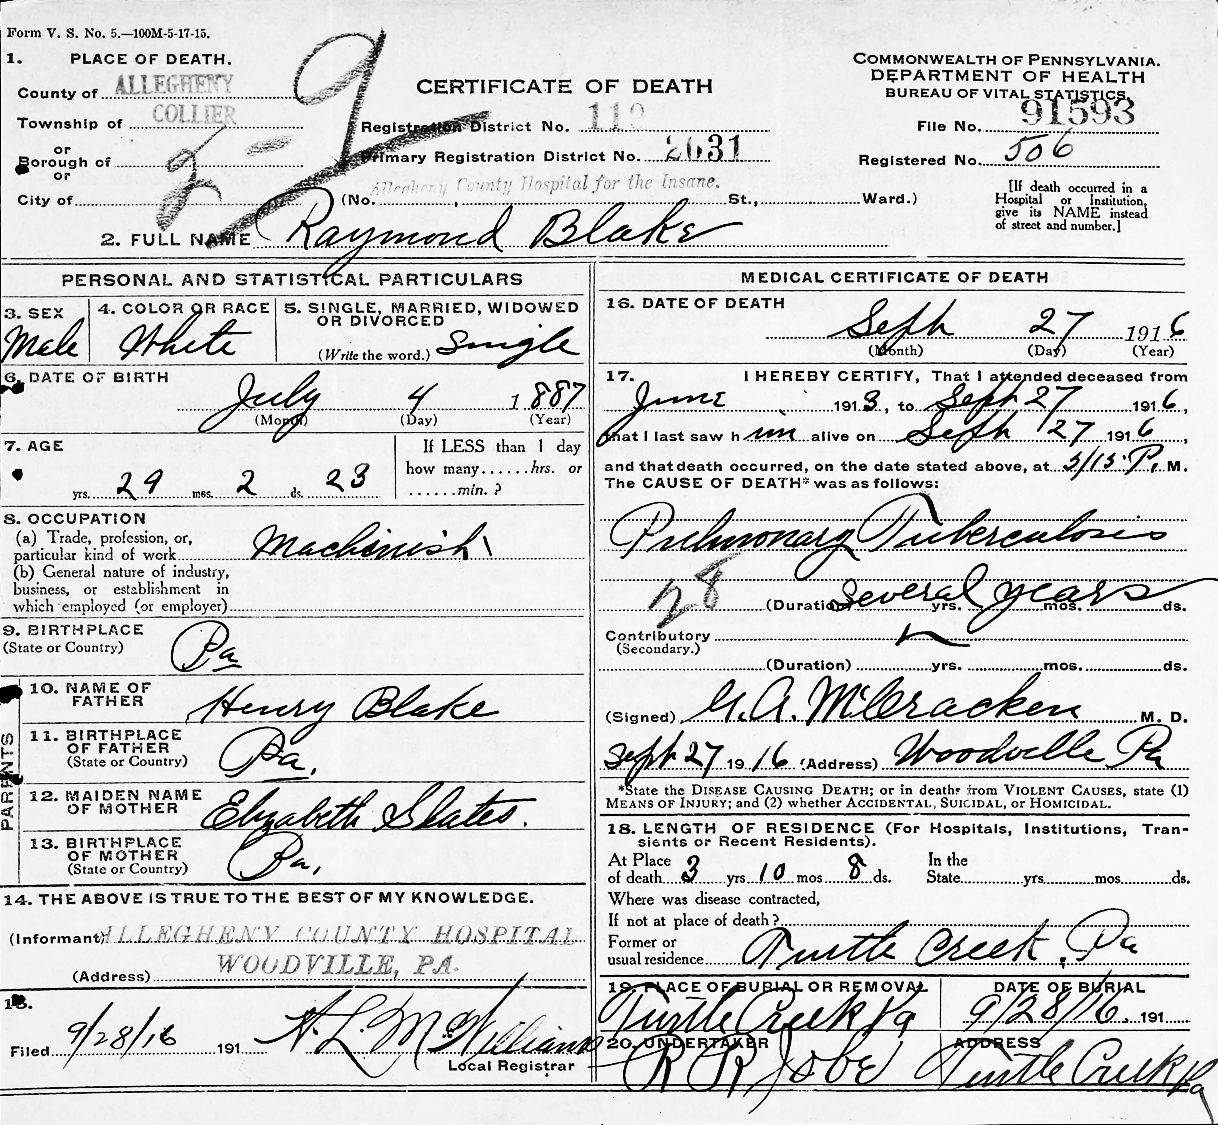 Form V. S. No. 5.—100M-5-17-15.
1. PLACE OF DEATH.
County of ALLEGHENY
Township of COLLIER
or
Borough of
or
City of
CERTIFICATE OF DEATH
Registration District No. 110
Primary Registration District No. 2631
(No. Allegheny County Hospital for the Insane. St., Ward.)
COMMONWEALTH OF PENNSYLVANIA.
DEPARTMENT OF HEALTH
BUREAU OF VITAL STATISTICS.
File No. 91593
Registered No. 506
[If death occurred in a
Hospital or Institution,
give its NAME instead
of street and number.]
2. FULL NAME Raymond Blake
PERSONAL AND STATISTICAL PARTICULARS
3. SEX
Male
4. COLOR OR RACE
White
5. SINGLE, MARRIED, WIDOWED
OR DIVORCED
(Write the word.) Single
6. DATE OF BIRTH
July 4 1887
(Month) (Day) (Year)
7. AGE
29 yrs. 2 mos. 23 ds.
If LESS than 1 day
how many......hrs. or
......min. ?
8. OCCUPATION
(a) Trade, profession, or,
particular kind of work Machinist
(b) General nature of industry,
business, or establishment in
which employed (or employer)
9. BIRTHPLACE
(State or Country) Pa
PARENTS
10. NAME OF
FATHER Henry Blake
11. BIRTHPLACE
OF FATHER
(State or Country) Pa.
12. MAIDEN NAME
OF MOTHER Elizabeth Slates.
13. BIRTHPLACE
OF MOTHER
(State or Country) Pa.
14. THE ABOVE IS TRUE TO THE BEST OF MY KNOWLEDGE.
(Informant) ALLEGHENY COUNTY HOSPITAL
(Address) WOODVILLE, PA.
15.
Filed 9/28/16 191 H. L. McWilliams
Local Registrar
MEDICAL CERTIFICATE OF DEATH
16. DATE OF DEATH
Sept 27 1916
(Month) (Day) (Year)
17. I HEREBY CERTIFY, That I attended deceased from
June 1913, to Sept 27 1916,
that I last saw him alive on Sept 27 1916,
and that death occurred, on the date stated above, at 3/15 P. M.
The CAUSE OF DEATH* was as follows:
Pulmonary Tuberculosis
28
(Duration) several years yrs. mos. ds.
Contributory
(Secondary.)
(Duration) yrs. mos. ds.
(Signed) G. A. McCracken M. D.
Sept 27 1916 (Address) Woodville Pa
*State the DISEASE CAUSING DEATH; or in deaths from VIOLENT CAUSES, state (1)
MEANS OF INJURY; and (2) whether ACCIDENTAL, SUICIDAL, or HOMICIDAL.
18. LENGTH OF RESIDENCE (For Hospitals, Institutions, Tran-
sients or Recent Residents).
At Place
of death 3 yrs 10 mos 8 ds.
In the
State yrs. mos ds.
Where was disease contracted,
If not at place of death?
Former or
usual residence Turtle Creek, Pa
19. PLACE OF BURIAL OR REMOVAL
Turtle Creek Pa
DATE OF BURIAL
9/28/16. 191
20. UNDERTAKER
R R Jobe
ADDRESS
Turtle Creek Pa